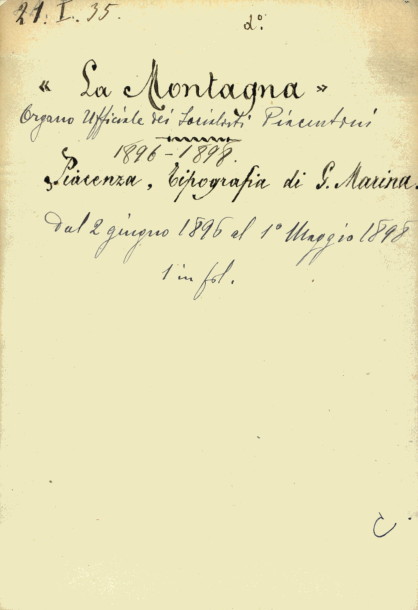 21. I. 35.
d°.
« La Montagna »
Organo Ufficiale dei Socialisti Piacentini
1896-1898.
Piacenza, Tipografia di G. Marina.
Dal 2 giugno 1896 al 1° Maggio 1898
1 in fol.
C.